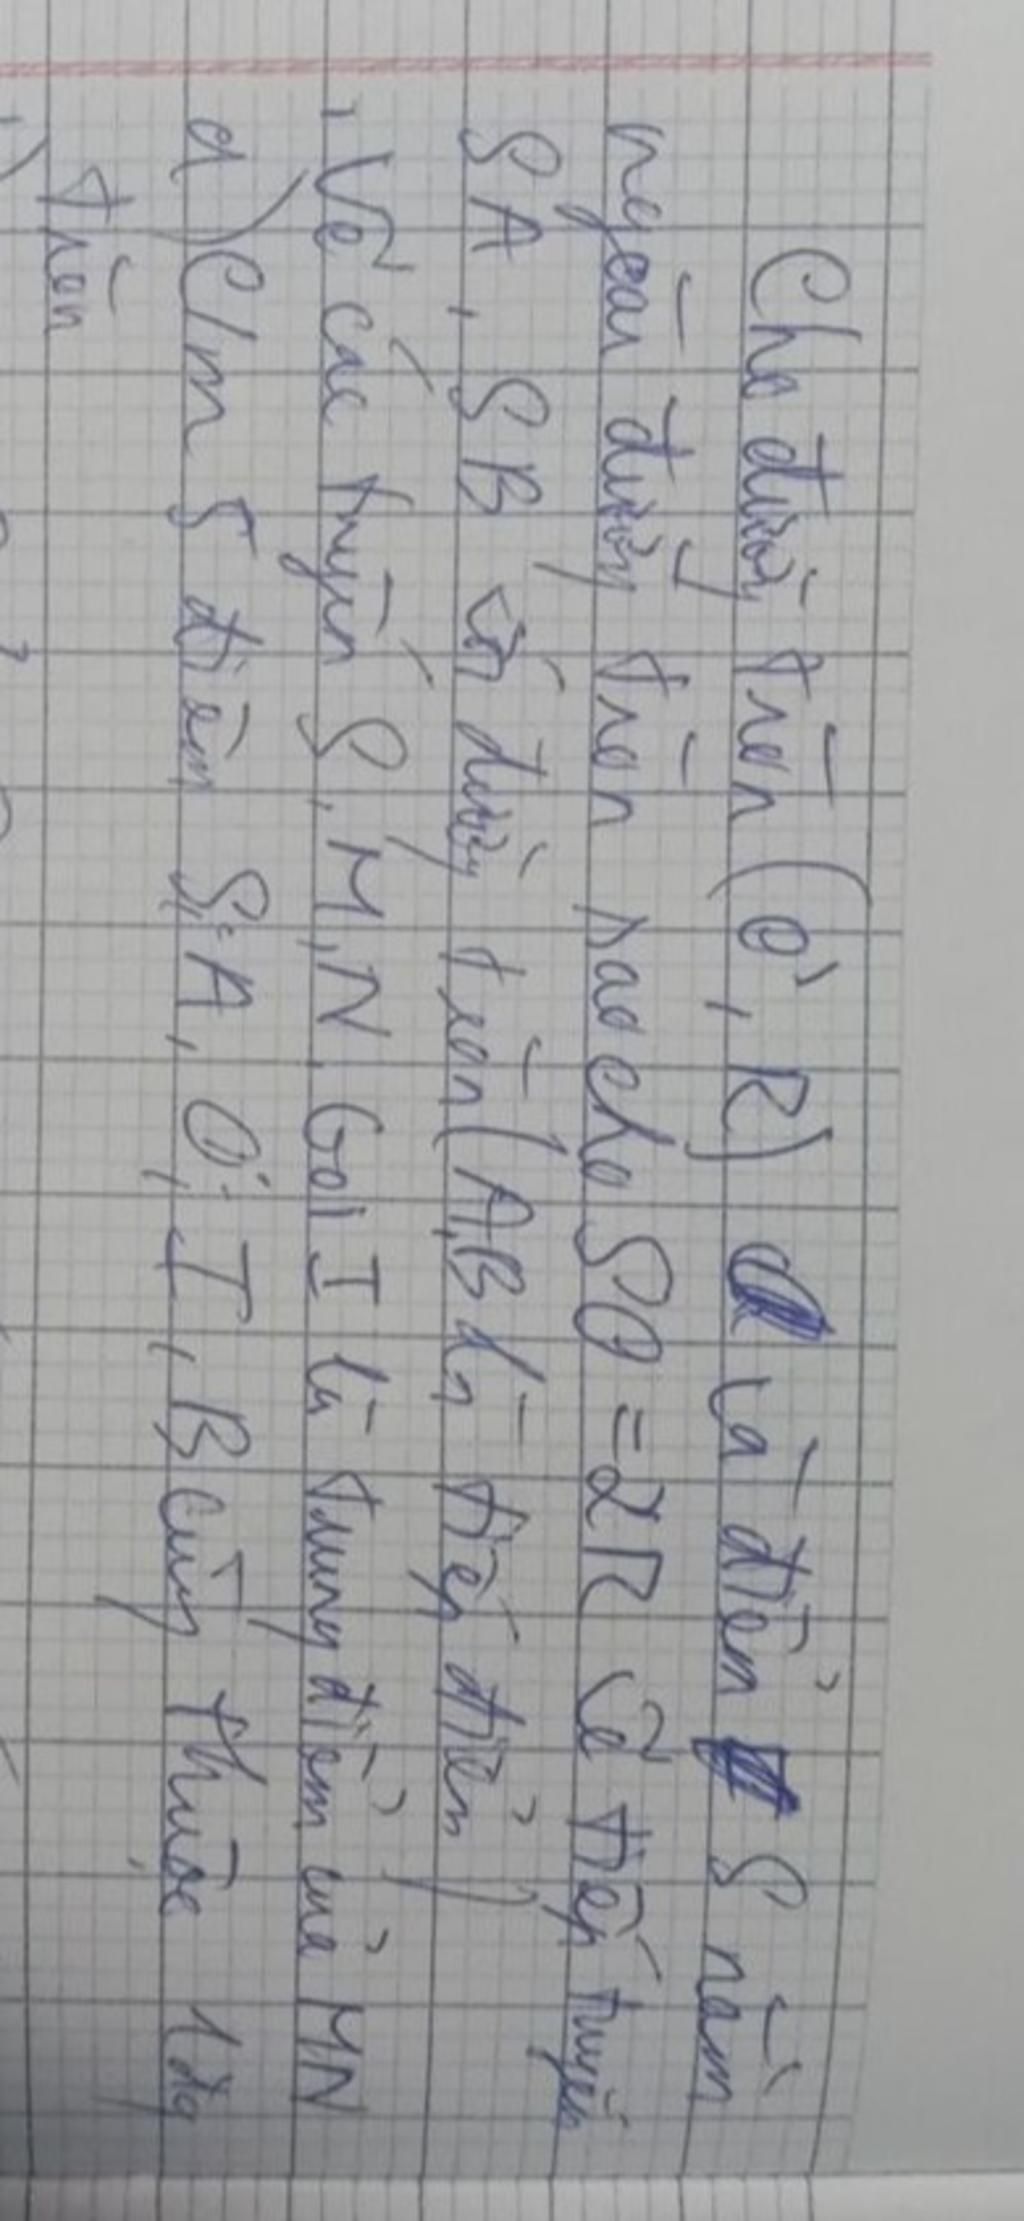 Cho đường tròn (O, R) là điểm S nằm
ngoài đường tròn sao cho SO = 2R Vẽ tiếp tuyến
SA, SB với đường tròn (A, B là tiếp điểm)
, Vẽ các tuyến S, M, N. Gọi I là trung điểm của MN
a) C/m 5 điểm S, A, O, I, B cùng thuộc 1 đg
tròn